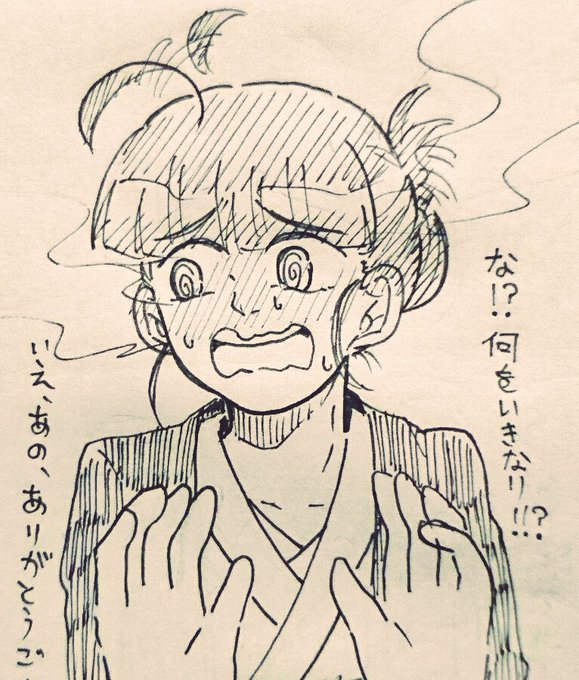 な!?何をいきなり!!?
いえ、あの、ありがとうご